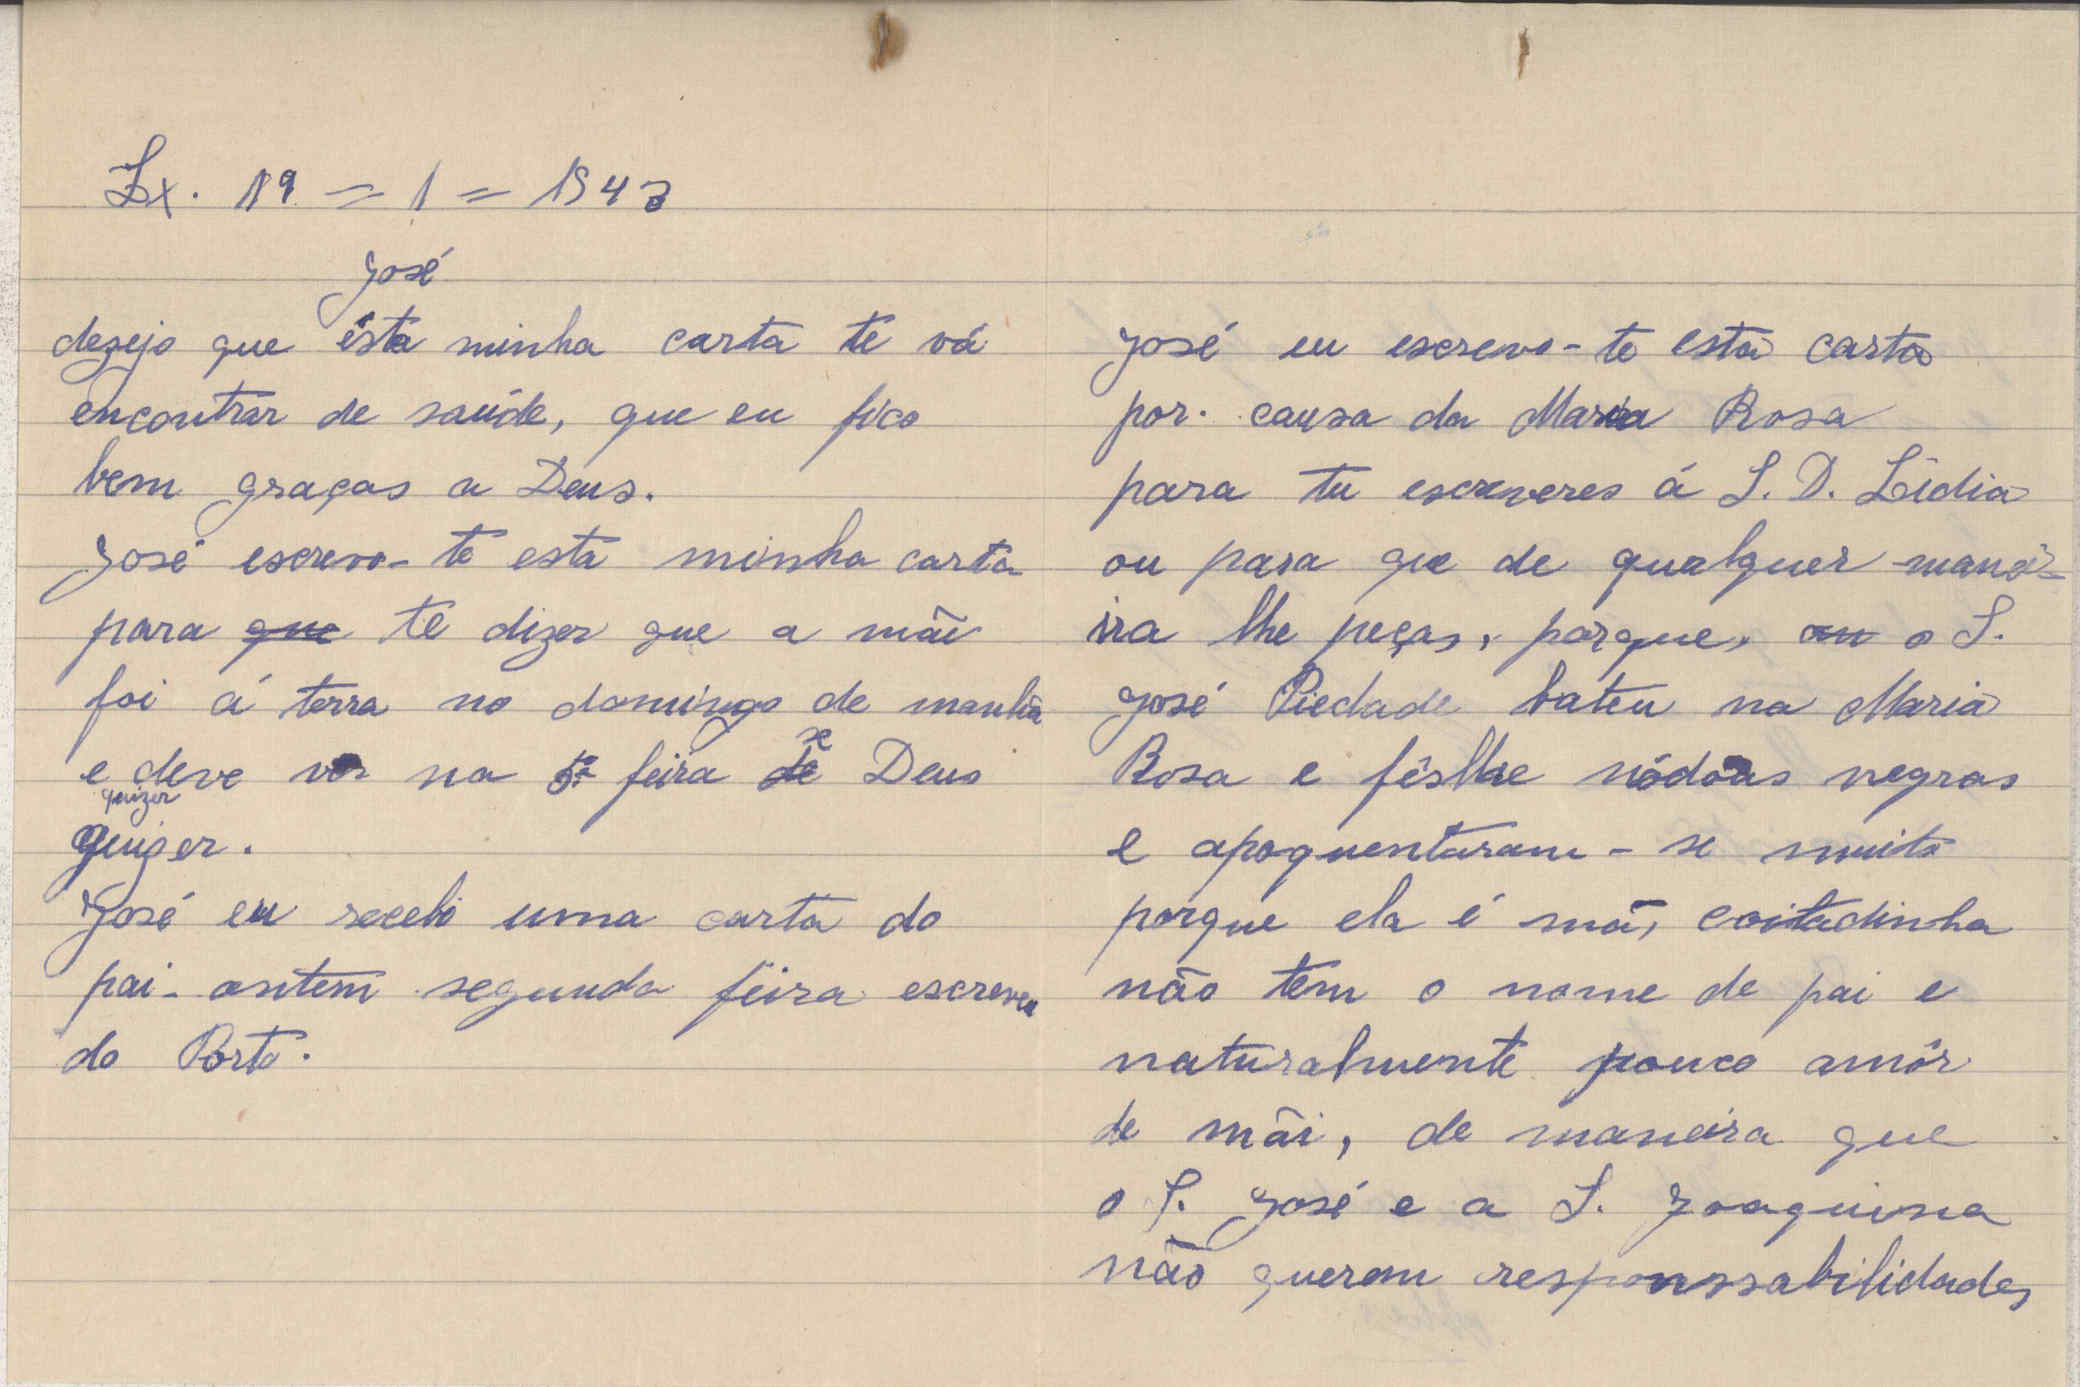 Lx. 19 = 1 = 1943
José
dezejo que ésta minha carta te vá
encontrar de saúde, que eu fico
bem graças a Deus.
José escrevo-te esta minha carta
para que te dizer que a mãi
foi á terra no domingo de manhã
e deve vir na 5ª feira se Deus
quizer
quizer.
José eu recebi uma carta do
pai - ontem segunda feira escreveu
do Porto.
José eu escrevo-te esta carta
por. causa da Maria Rosa
para tu escreveres á S. D. Lídia
ou para que de qualquer mane-
ira lhe peças, porque, o S.
José Piedade bateu na Maria
Rosa e fêslhe nódoas negras
e apoquentaram-se muito
porque ela é má, coitadinha
não tem o nome de pai e
naturalmente pouco amôr
de mãi, de maneira que
o S. José e a S. Joaquina
não querem responssabilidades,